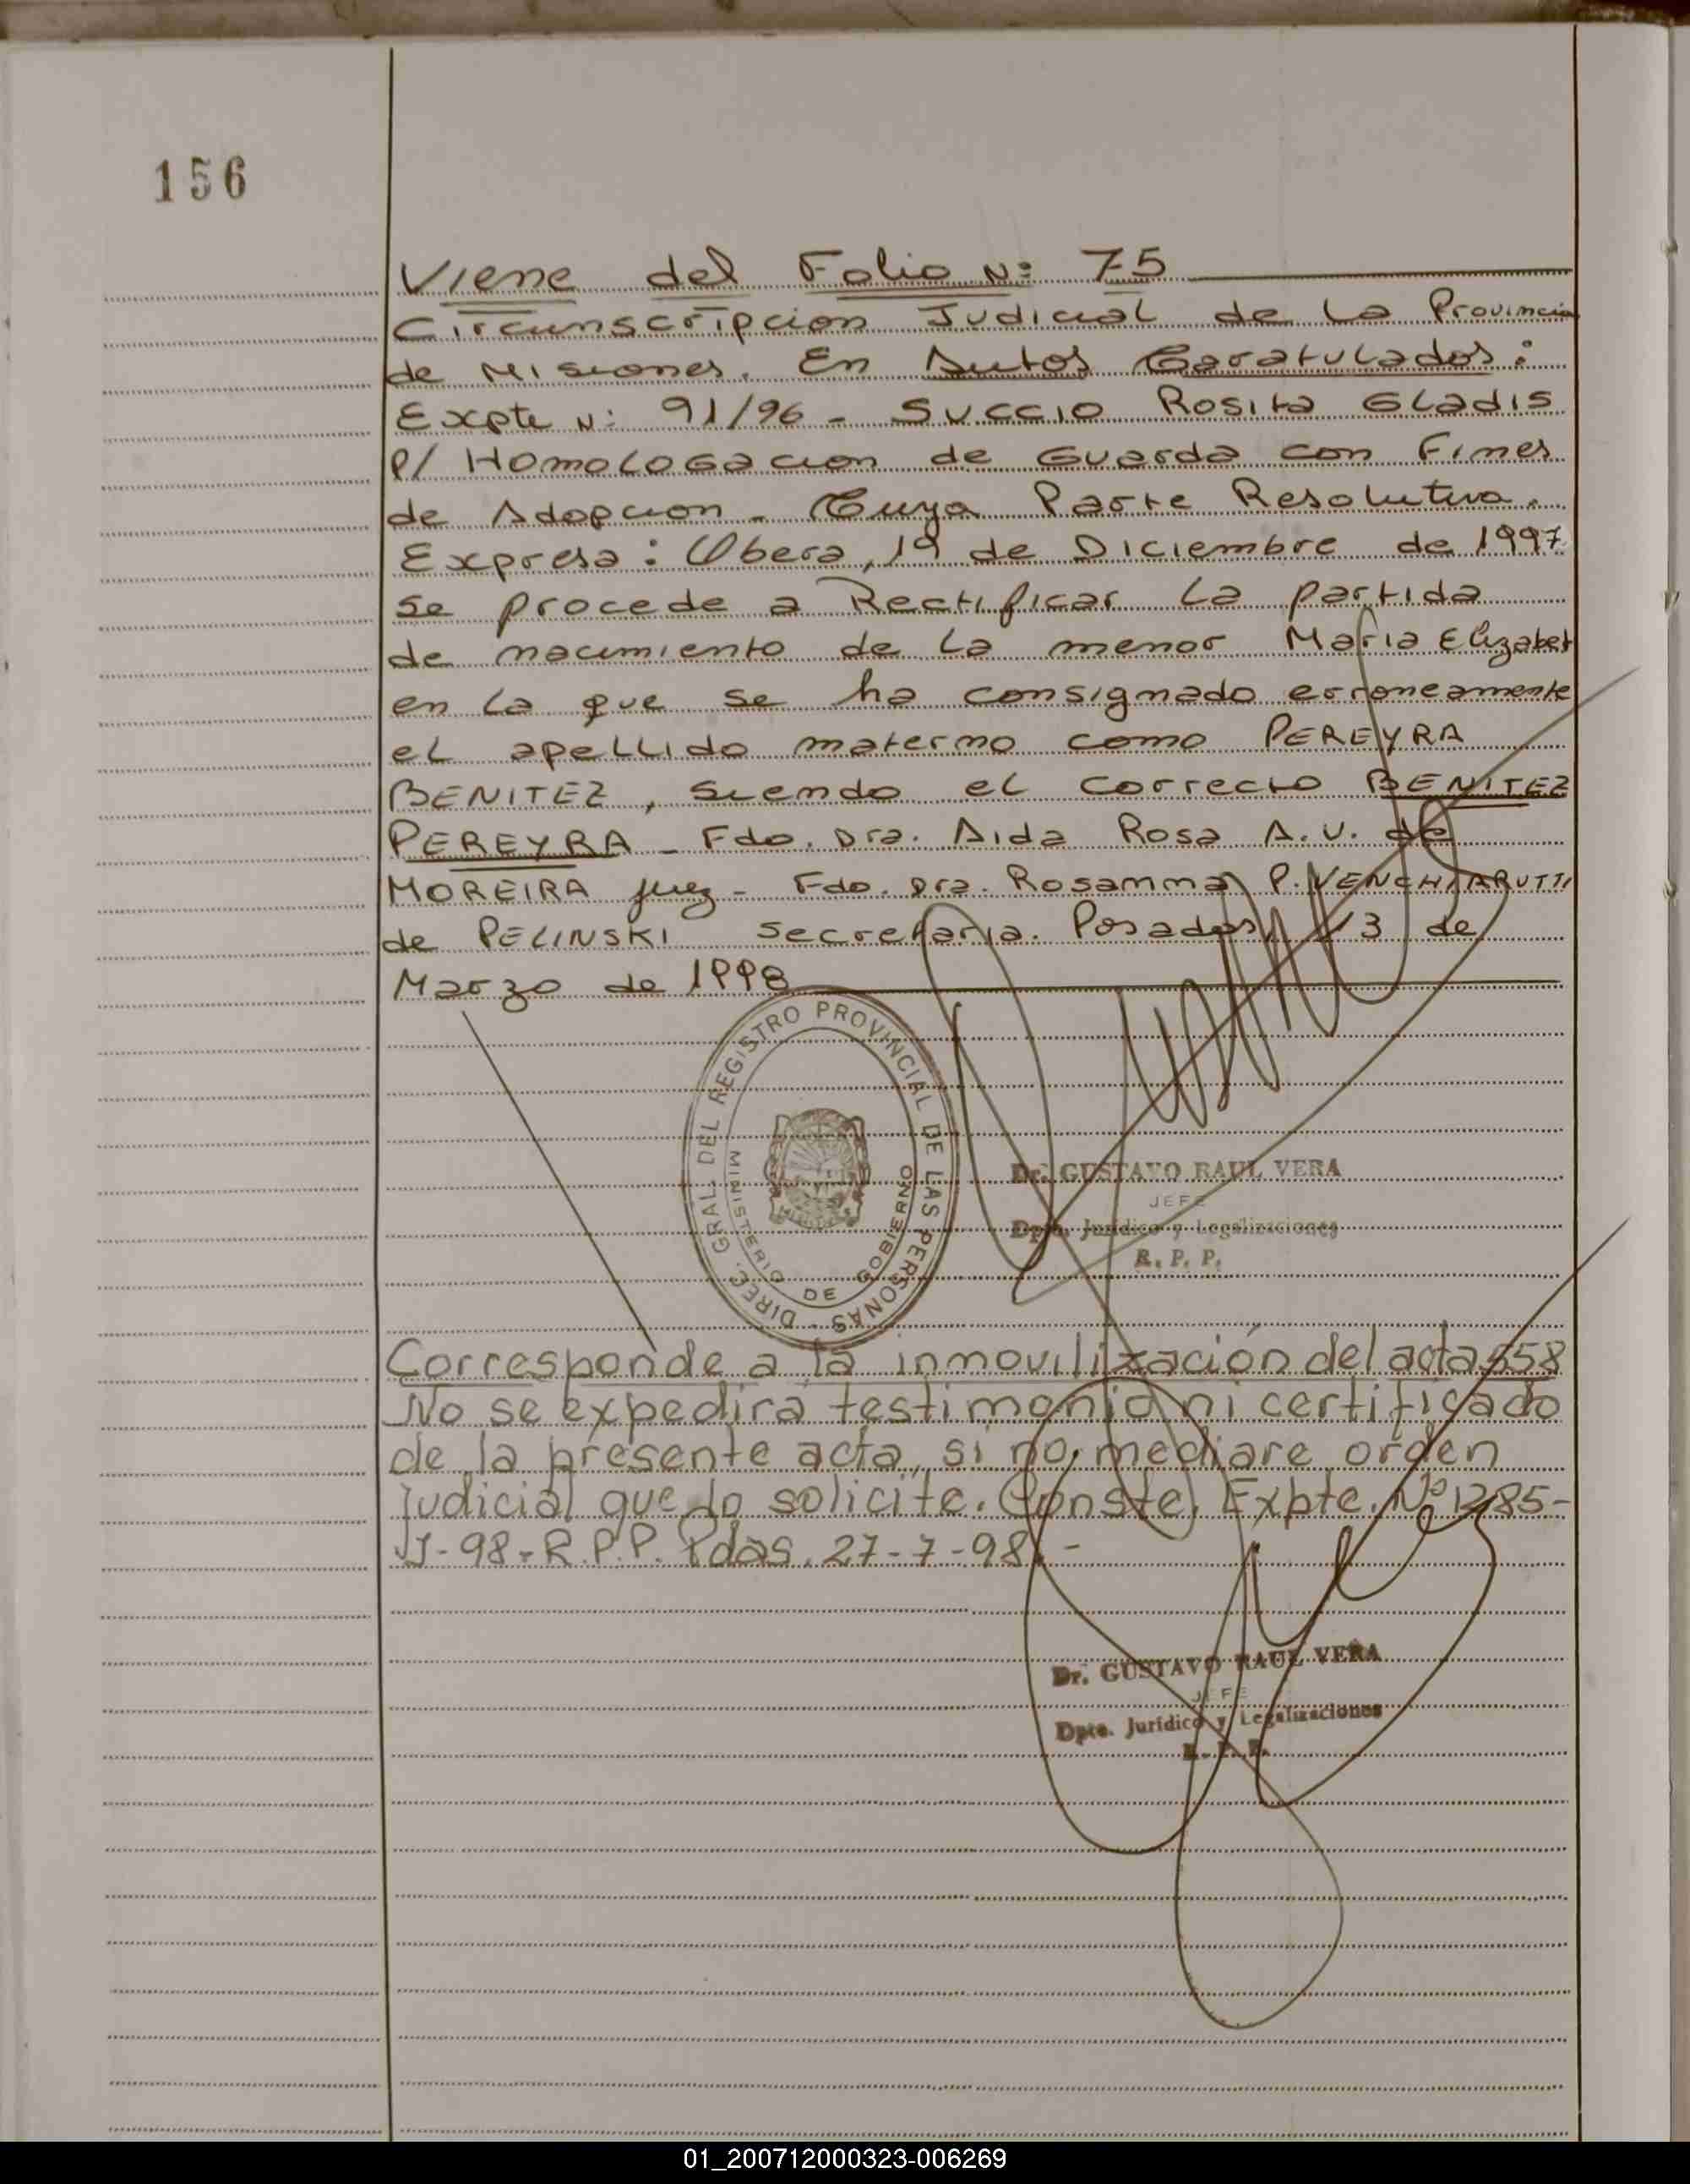 156
Viene del Folio N: 75
Circunscripcion Judicial de La Provincia
de Misiones. En Autos Caratulados:
Expte N: 91/96 - SUCCIO ROSITA GLADIS
P/ HOMOLOGACION de Guarda con Fines
de Adopcion - Cuya Parte Resolutiva.
Expresa: Obera, 19 de Diciembre de 1997
se procede a Rectificar La partida
de nacimiento de La menor Maria Elizabet
en La que se ha consignado erroneamente
el apellido materno como PEREYRA
BENITEZ, siendo el correcto BENITEZ
PEREYRA - Fdo. Dra. Aida Rosa A.V. de
MOREIRA Juez - Fdo. Dra. Rosanna P. VENCHIARUTTI
de PELINSKI Secretaria. Posadas, 13 de
Marzo de 1998
DIREC. GRAL. DEL REGISTRO PROVINCIAL DE LAS PERSONAS -
MINISTERIO DE GOBIERNO
Dr. GUSTAVO RAUL VERA
JEFE
Dpto. Jurídico y Legalizaciones
R. P. P.
Corresponde a la inmovilización del acta 558
No se expedirá testimonio ni certificado
de la presente acta, si no mediare orden
judicial que lo solicite. Conste. Expte. Nº 1285-
J-98-R.P.P. Pdas. 27-7-98.-
Dr. GUSTAVO RAUL VERA
JEFE
Dpto. Jurídico y Legalizaciones
R. P. P.
01_200712000323-006269